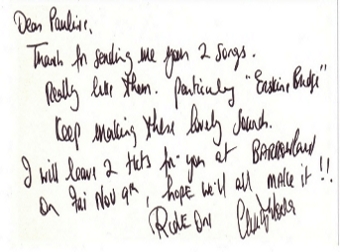 Dear Pauline,
Thanks for sending me your 2 songs.
Really like them. particularly "Erskine Bridge"
Keep making these lovely sounds.
I will leave 2 tkts for you at BARROWLAND
On Fri Nov 9th, hope we'll all make it!!
RIDE ON